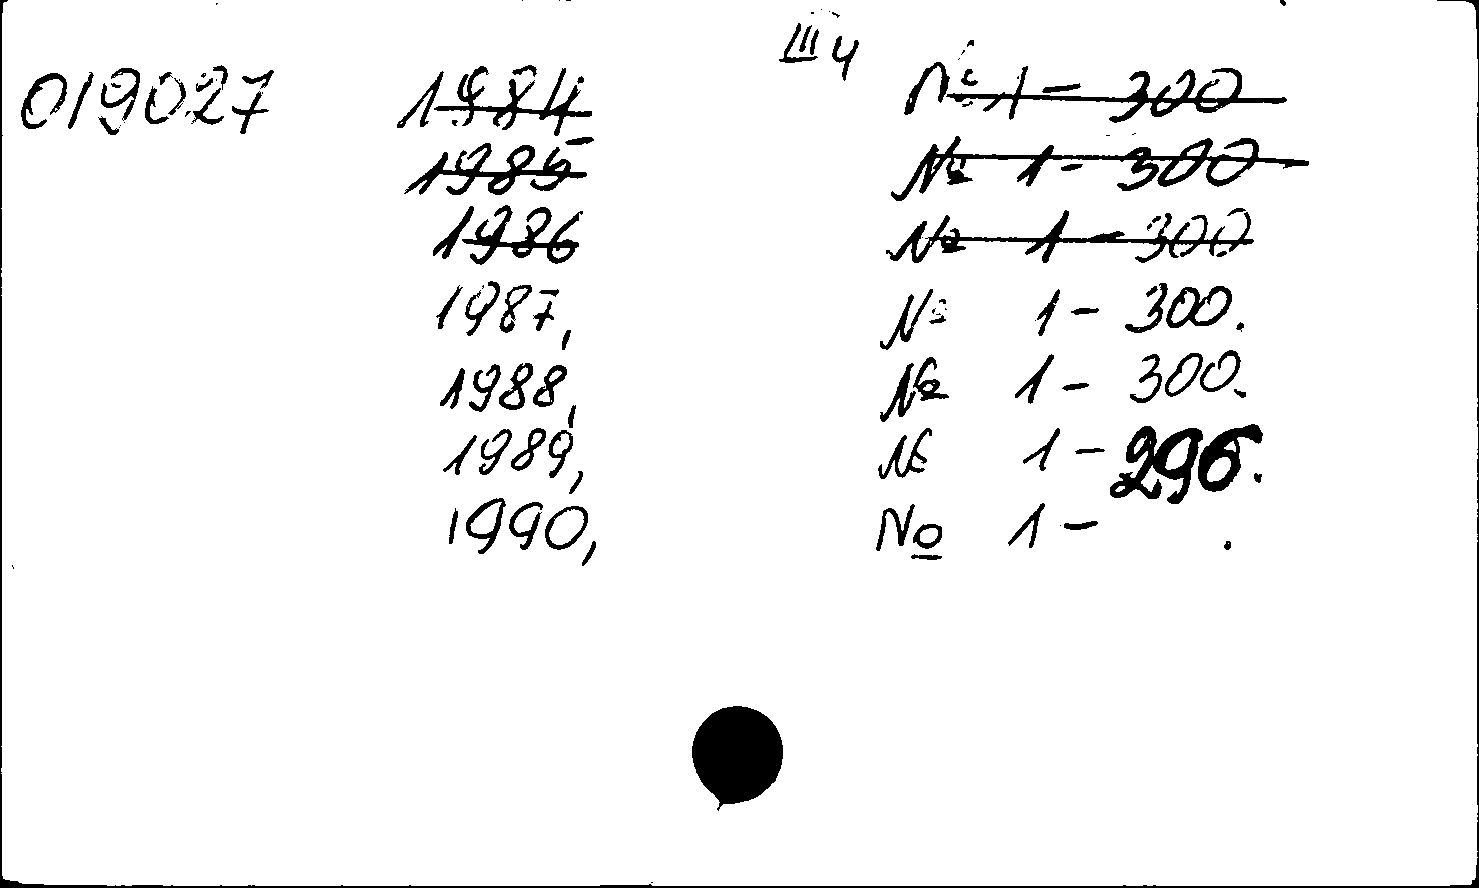 III ч
019027 1984 № 1 - 300
1985 № 1 - 300
1986 № 1 - 300
1987, № 1 - 300.
1988, № 1 - 300.
1989, № 1 - 296.
1990, № 1 - .